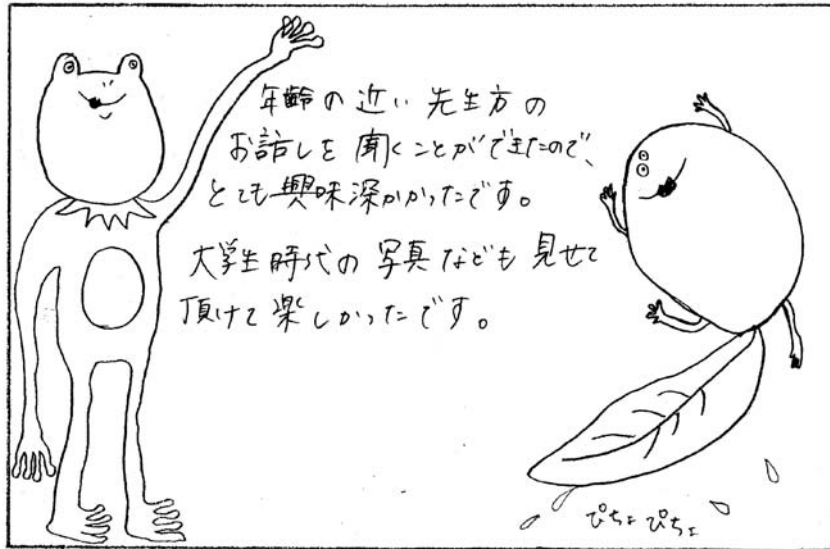 年齢の近い先生方の
お話しを聞くことができたので、
とても興味深かかったです。
大学生時代の写真なども見せて
頂けて楽しかったです。
ぴちょぴちょ